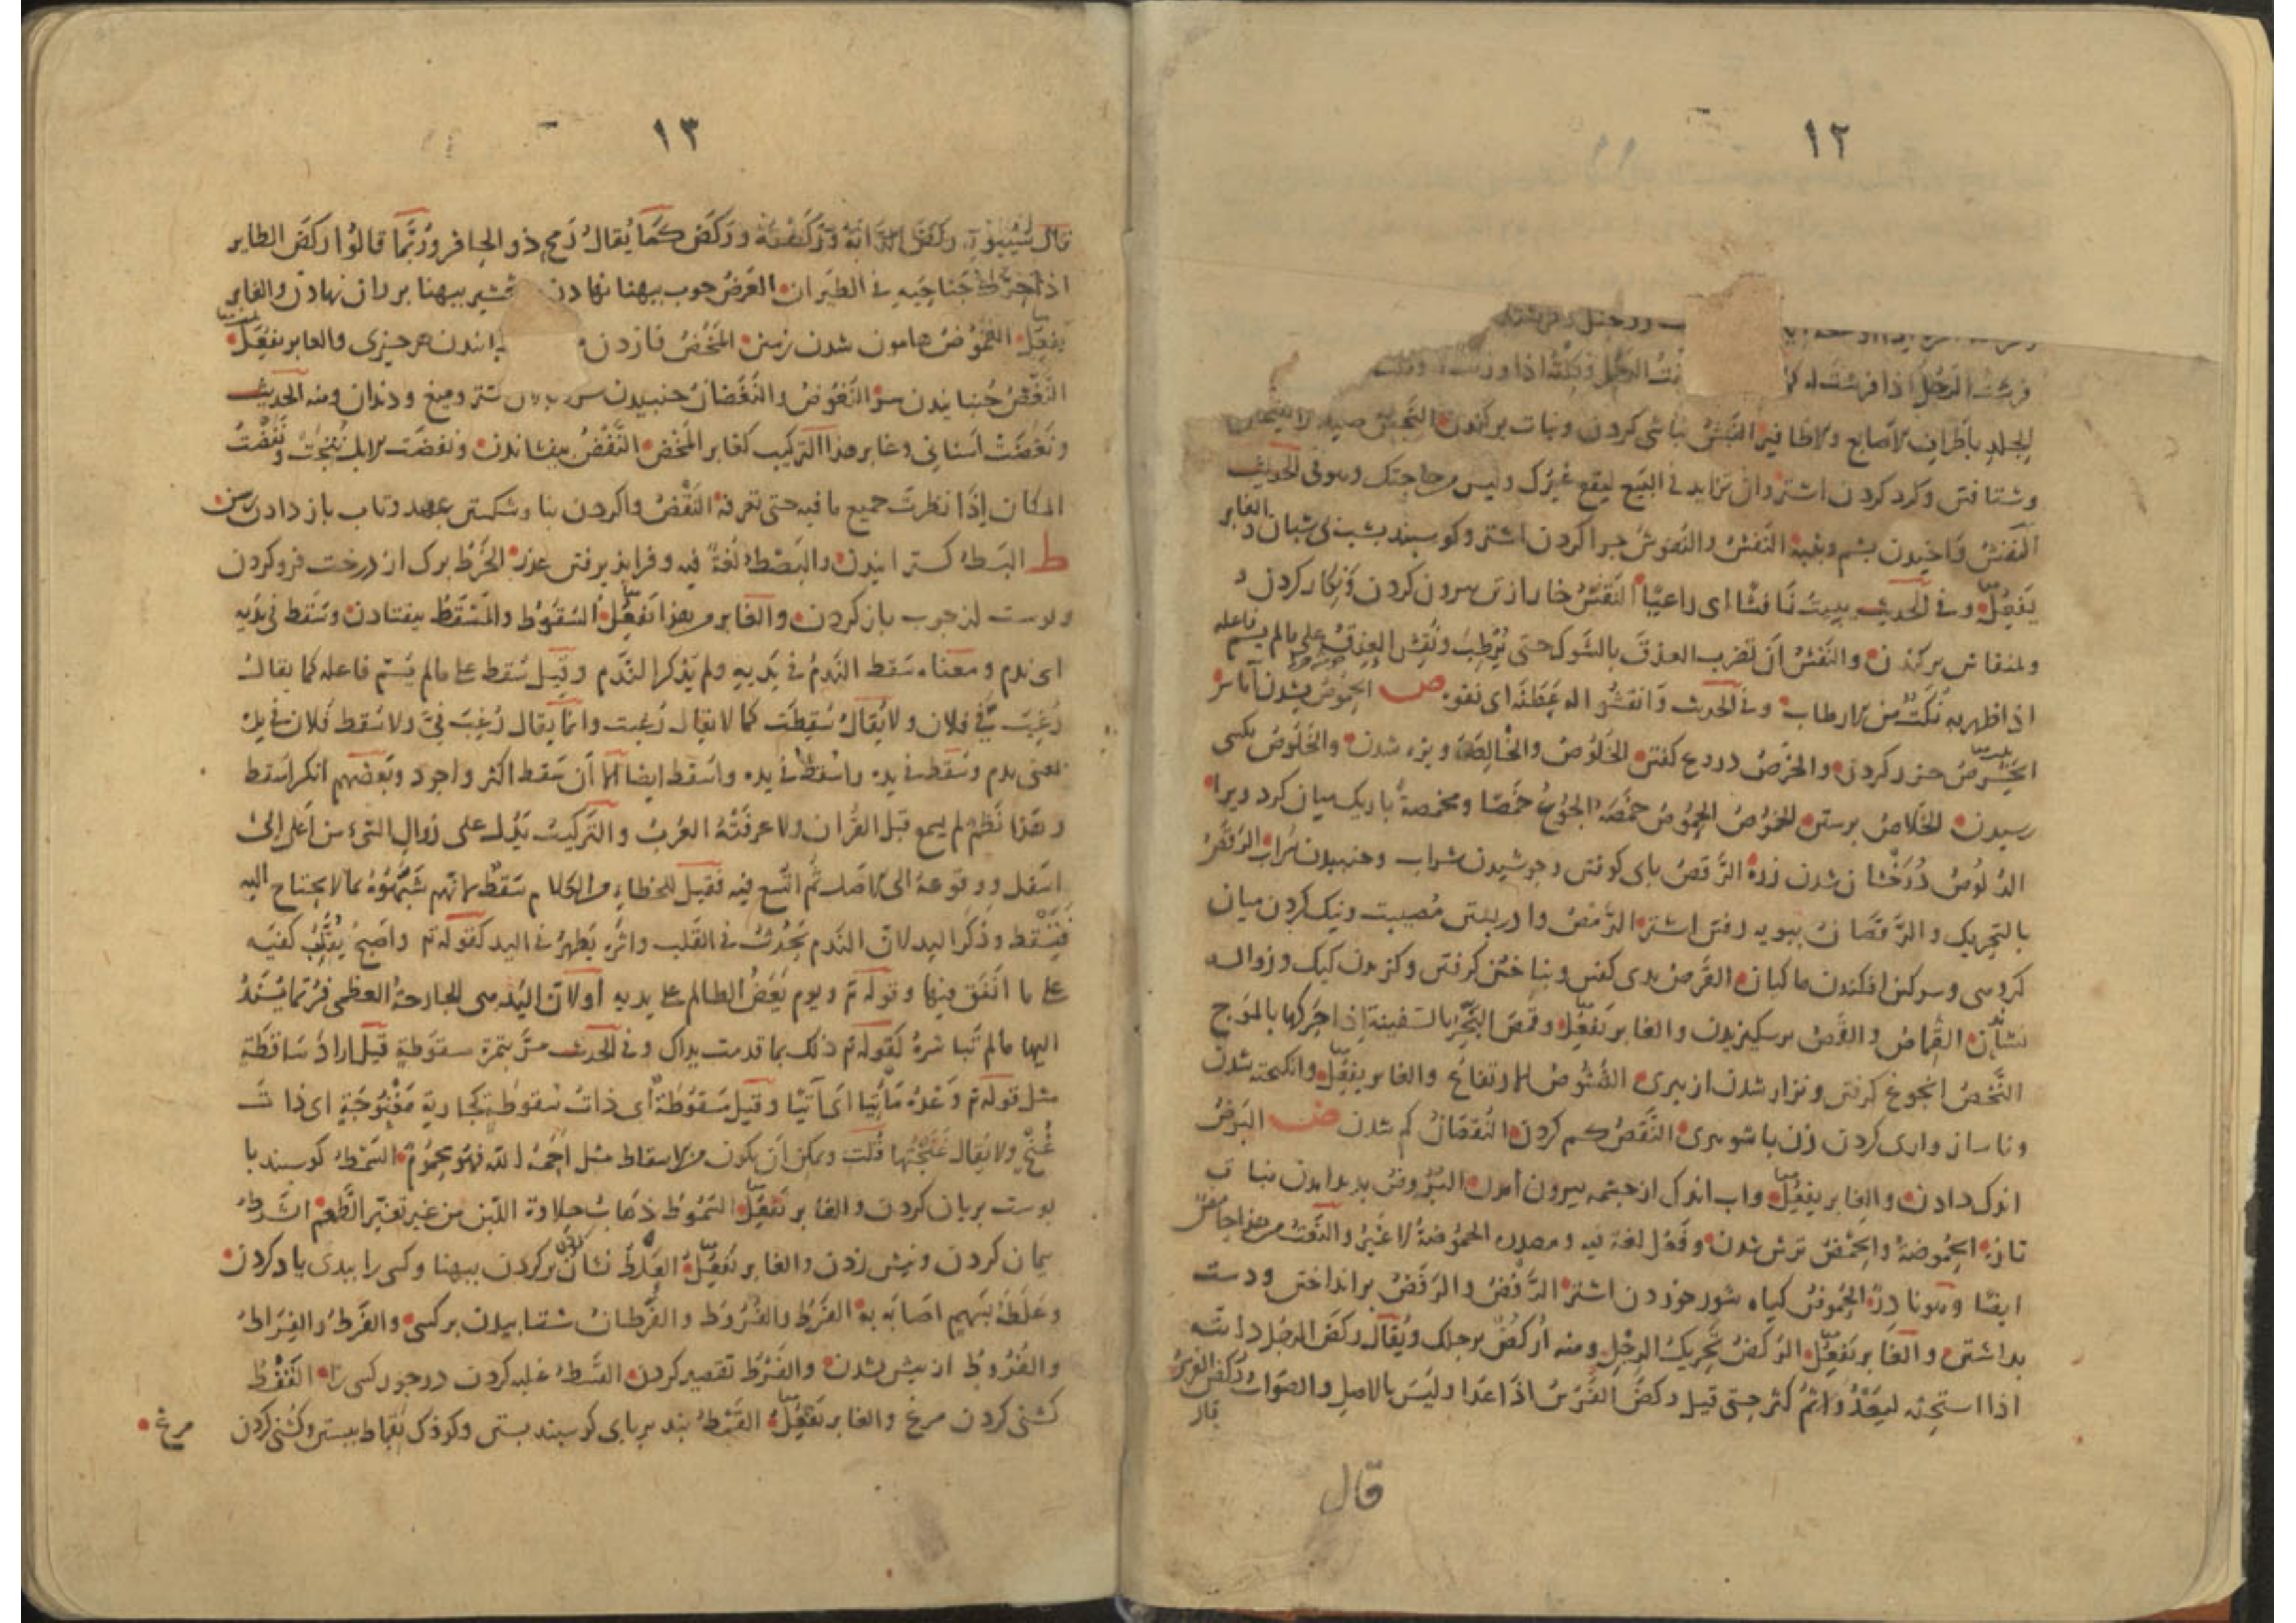 ١٢
فرشت الرجل اذا فرشت له
الجلد باطراف الاصابع والاظافير النبش نباشى كردن ونبات بركندن النجش صيد را
وشتافتن وكرد كردن اشتر وان تزايد فى البيع ليقع غيرك وليس من حاجتك وهو فى الحديث
النفش واخيدن پشم وپنبه النفش والنفوش چرا كردن اشتر وكوسپند بشب بى شبان والغابر
يفعل وفى الحديث نافشا اى راعيا النقش خار از تن بيرون كردن ونكار كردن و
بمنقاش بركندن والنقش ان تضرب العذق بالشوك حتى يرطب ونقش العذق على ما لم يسم فاعله
اذا ظهر به نكت من الارطاب وفى الحديث وانقشوا له عطنه اى نقوه ص الحموص بشدن آماس
الخرص حزر كردن والخرص دروغ كفتن الخلوص والخالصة ويژه شدن والخلوص بكسى
رسيدن الخلاص برستن الخموص خمصه الجوع خمصا ومخمصة باريك ميان كرد ويرا
الدلوص درخشان شدن زره الرقص پاى كوفتن وجوشيدن شراب وجنبيدن سراب الرقص
بالتحريك والرقصان بپويه رفتن اشتر الرمص وا دربستن مصيبت ونيك كردن ميان
كروهى وسركين افكندن ماكيان القرص بدى كفتن وبناخن كرفتن وكزيدن كيك وزواله
القماص والقمص برسكيزيدن والغابر يفعل وقمص البحر بالسفينة اذا حركها بالموج
النخص انجوغ كرفتن ونزار شدن از پيرى النشوص الارتفاع والغابر يفعل وانكيخته شدن
وناسازوارى كردن زن با شوهرى النقص كم كردن النقصان كم شدن ض البرض
اندك دادن والغابر يفعل واب اندك از چشمه بيرون امدن البروض پديد امدن نبات
تازه الحموضة والحمض ترش شدن وفعل لغة فيه ومصدره الحموضة لا غير والنعت من هذا حامض
ايضا وهو نادر الحموض كياه شور خوردن اشتر الرفض والرفض برانداختن ودست
بداشتن والغابر يفعل الركض تحريك الرجل ومنه اركض برجلك ويقال ركض الرجل دابته
اذا استحثه ليعدو ثم كثر حتى قيل ركض الفرس اذا عدا وليس بالاصل والصواب ركض الفرس
قال
قال
١٣
قال سيبويه ركض الدابة وركضته وركض كما يقال رمح ذو الحافر وربما قالوا ركض الطاير
اذا حرك جناحيه فى الطيران العرض چوب بپهنا نهادن شمشير بپهنا بر ران نهادن والغابر
يفعل الغموض هامون شدن زمين المخض فا زدن جنبانيدن هر چيزى والغابر يفعل
النغض جنبانيدن سر النغوض والنغضان جنبيدن سر شتر وميغ ودندان ومنه الحديث
ونغضت اسنانى وغابر هذا التركيب كغابر المخض النفض بيفشاندن ونفضت الابل نتجت ونفضت
المكان اذا نظرت جميع ما فيه حتى تعرفه النقض واكردن بنا وشكستن عهد وتاب باز دادن رسن
ط البسط كسترانيدن والبصط لغة فيه وفراپذيرفتن عذر الخرط برك از درخت فرو كردن
وپوست از چوب باز كردن والغابر من هذا يفعل السقوط والمسقط بيفتادن وسقط فى يديه
اى ندم ومعناه سقط الندم فى يديه ولم يذكر الندم وقيل سقط على ما لم يسم فاعله كما يقال
رغب فى فلان ولا يقال سقطت كما لا يقال رغبت وانما يقال رغب فى ولا سقط فلان فى يده
بمعنى ندم وسقط فى يده واسقط فى يده واسقط ايضا الا ان سقط اكثر واجود وبعضهم انكر اسقط
وهذا نظم لم يسمع قبل القران ولا عرفته العرب والتركيب يدل على زوال الشىء من اعلى الى
اسفل ووقوعه الى الارض ثم اتسع فيه فقيل للخطاء من الكلام سقط لانهم شبهوه بما لا يحتاج اليه
فيسقط وذكر اليد لان الندم يحدث فى القلب واثره يظهر فى اليد كقوله تع واصبح يقلب كفيه
على ما انفق فيها وقوله تع ويوم يعض الظالم على يديه اولان اليد هى الجارحة العظمى فربما يسند
اليها ما لم تباشره كقوله تع ذلك بما قدمت يداك وفى الحديث مر بتمرة سقوطة قيل اراد ساقطة
مثل قوله تع وعده مأتيا اى آتيا وقيل سقوطة اى ذات سقوط كجارية مغنوجة اى ذات
غنج ولا يقال غنجتها قلت ويمكن ان يكون من الاسقاط مثل احمه الله فهو محموم السمط كوسپند با
پوست بريان كردن والغابر يفعل السموط ذهاب حلاوة اللبن من غير تغير الطعم الشرط
پيمان كردن ونيش زدن والغابر يفعل العلط نشان بر كردن بپهنا وكسى را ببدى ياد كردن
وعلطه بسهم اصابه به الفرط والفروط والفرطان شتابيدن بر كسى والفرط والفراط
والفروط از پيش بشدن والفرط تقصير كردن القسط غلبه كردن در جور كسى را القفط
كشنى كردن مرغ والغابر يفعل القمط بند بر پاى كوسپند بستن وكودك بقماط ببستن وكشنى كردن
مرغ